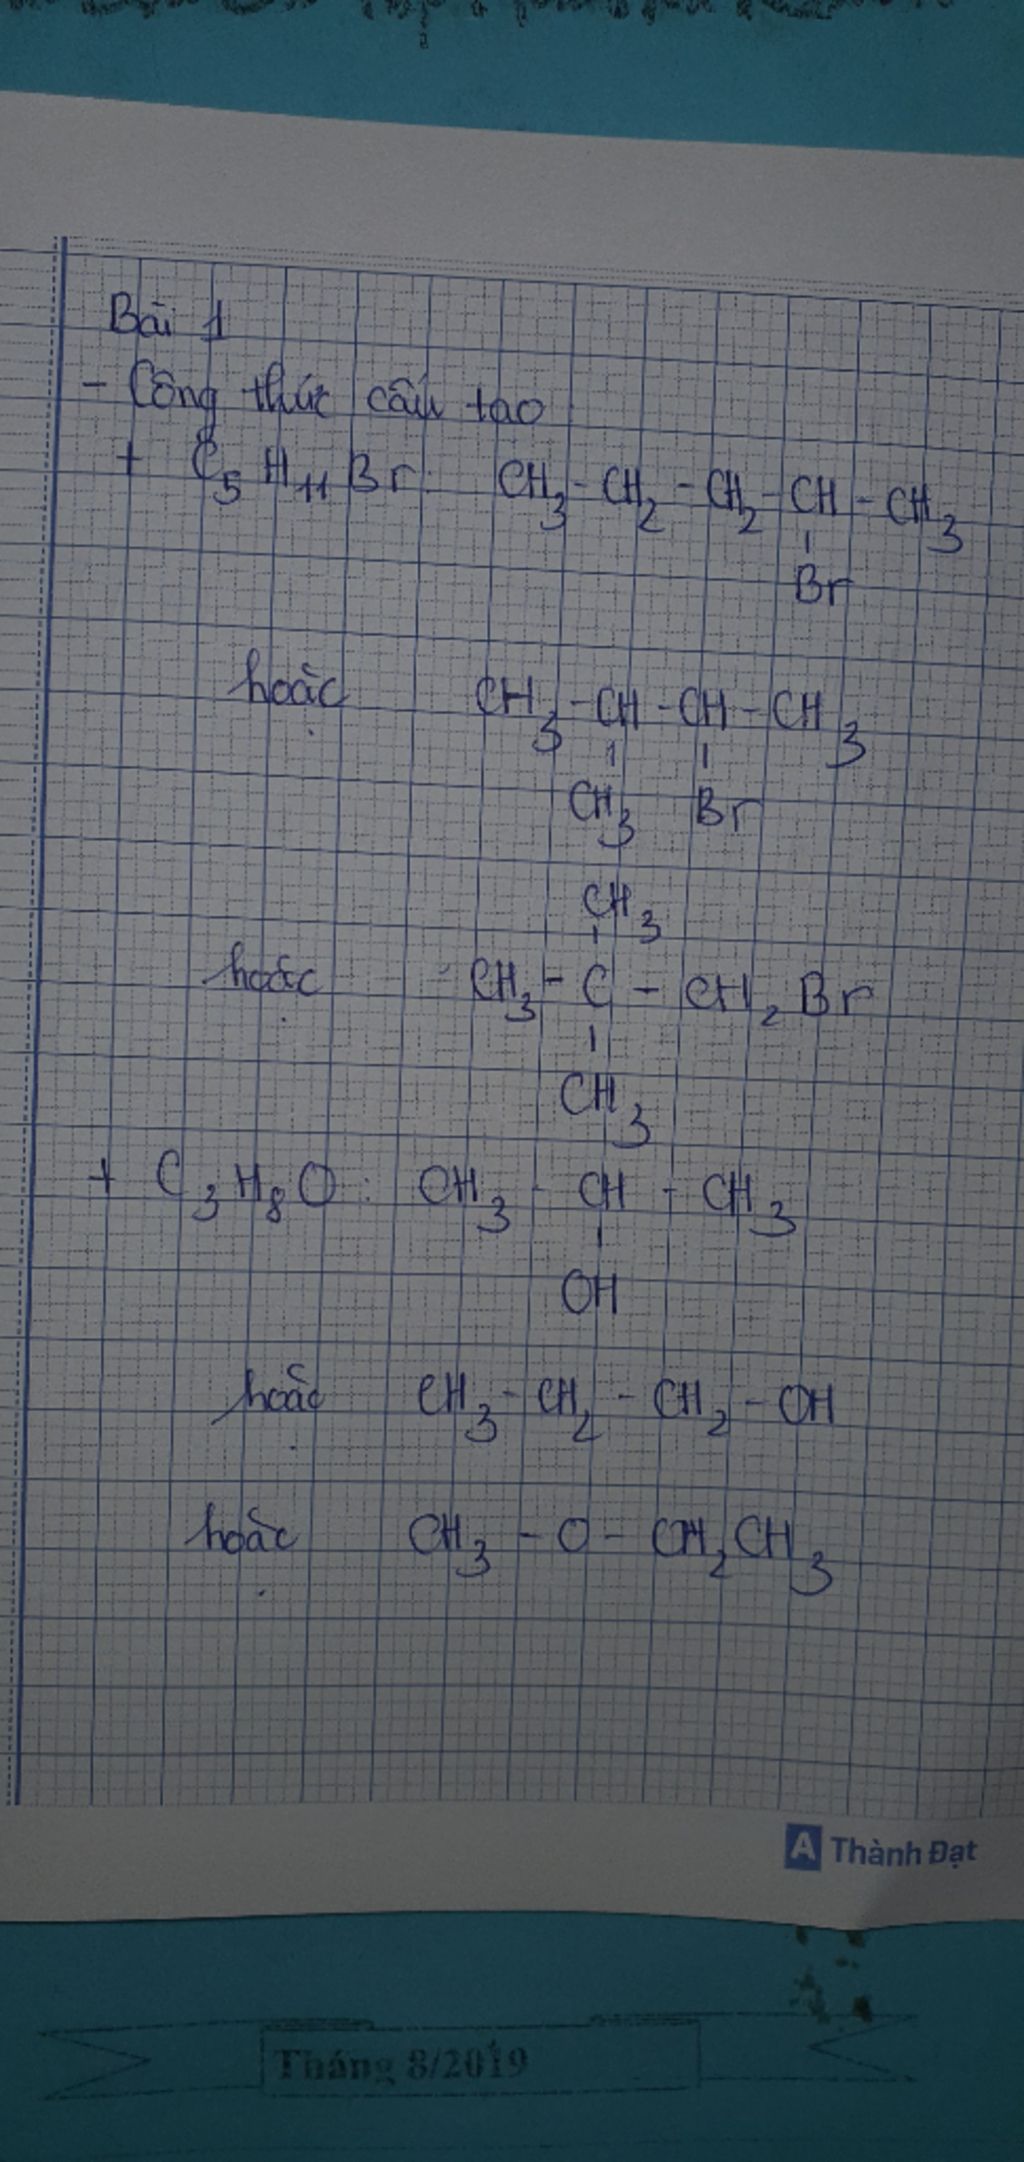 Bài 1
- Công thức cấu tạo
+ C5H11Br: CH3-CH2-CH2-CH-CH3
Br
hoặc CH3-CH-CH-CH3
CH3 Br
CH3
hoặc CH3-C-CH2Br
CH3
+ C3H8O: CH3-CH-CH3
OH
hoặc CH3-CH2-CH2-OH
hoặc CH3-O-CH2CH3
A Thành Đạt
Tháng 8/2019